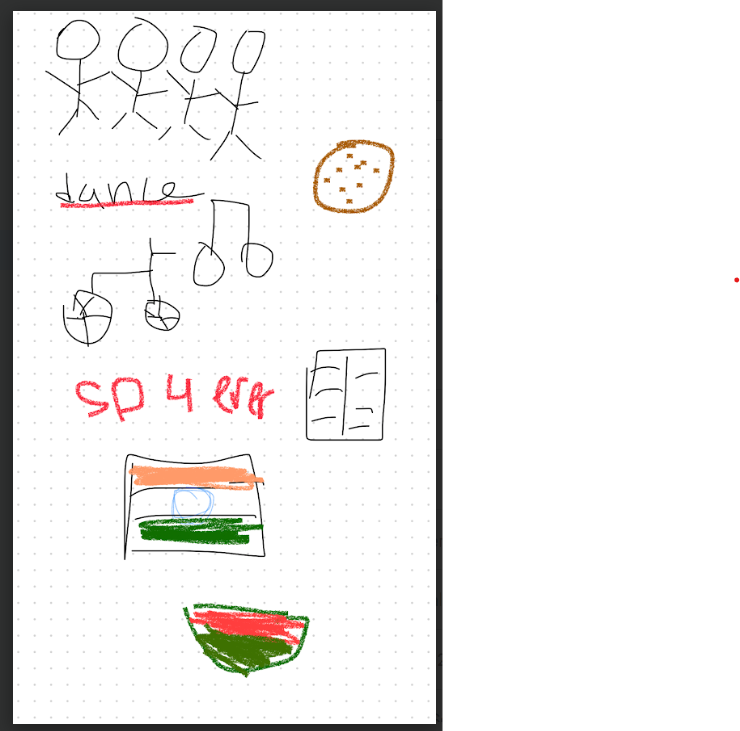 dance
SD 4 ever